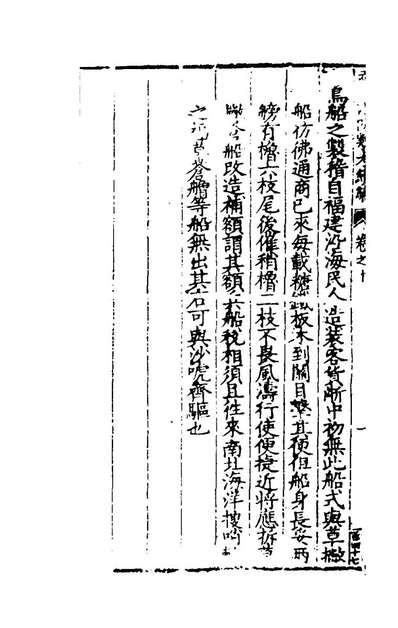 鳥船之製稽自福建沿海民人造裝客貨浙中初無此船式與草撇
船仿彿通商已來每載糖板木到關目擊其便但船身長安兩
榜有櫓六枝尾後催稍櫓二枝不畏風濤行使便捷近將應拆
船改造補額謂其額共船稅相須且往來南北海洋搜哨
蒼艚等船無出其右可與沙唬齊驅也
卷之十
一
百四十七